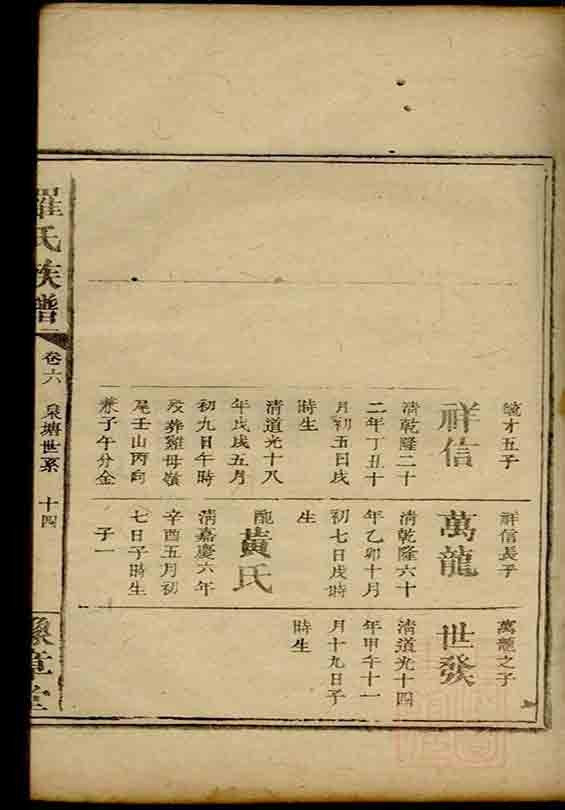 毓才五子
祥信
清乾隆二十
二年丁丑十
月初五日戌
時生
清道光十八
年戊戌五月
初九日午時
歿葬雞母嶺
尾壬山丙向
兼子午分金
祥信長子
萬龍
清乾隆六十
年乙卯十月
初七日戌時
生
配黃氏
清嘉慶六年
辛酉五月初
七日子時生
子一
萬龍之子
世發
清道光十四
年甲午十一
月十九日子
時生
羅氏族譜
卷六 泉塘世系 十四
豫章堂